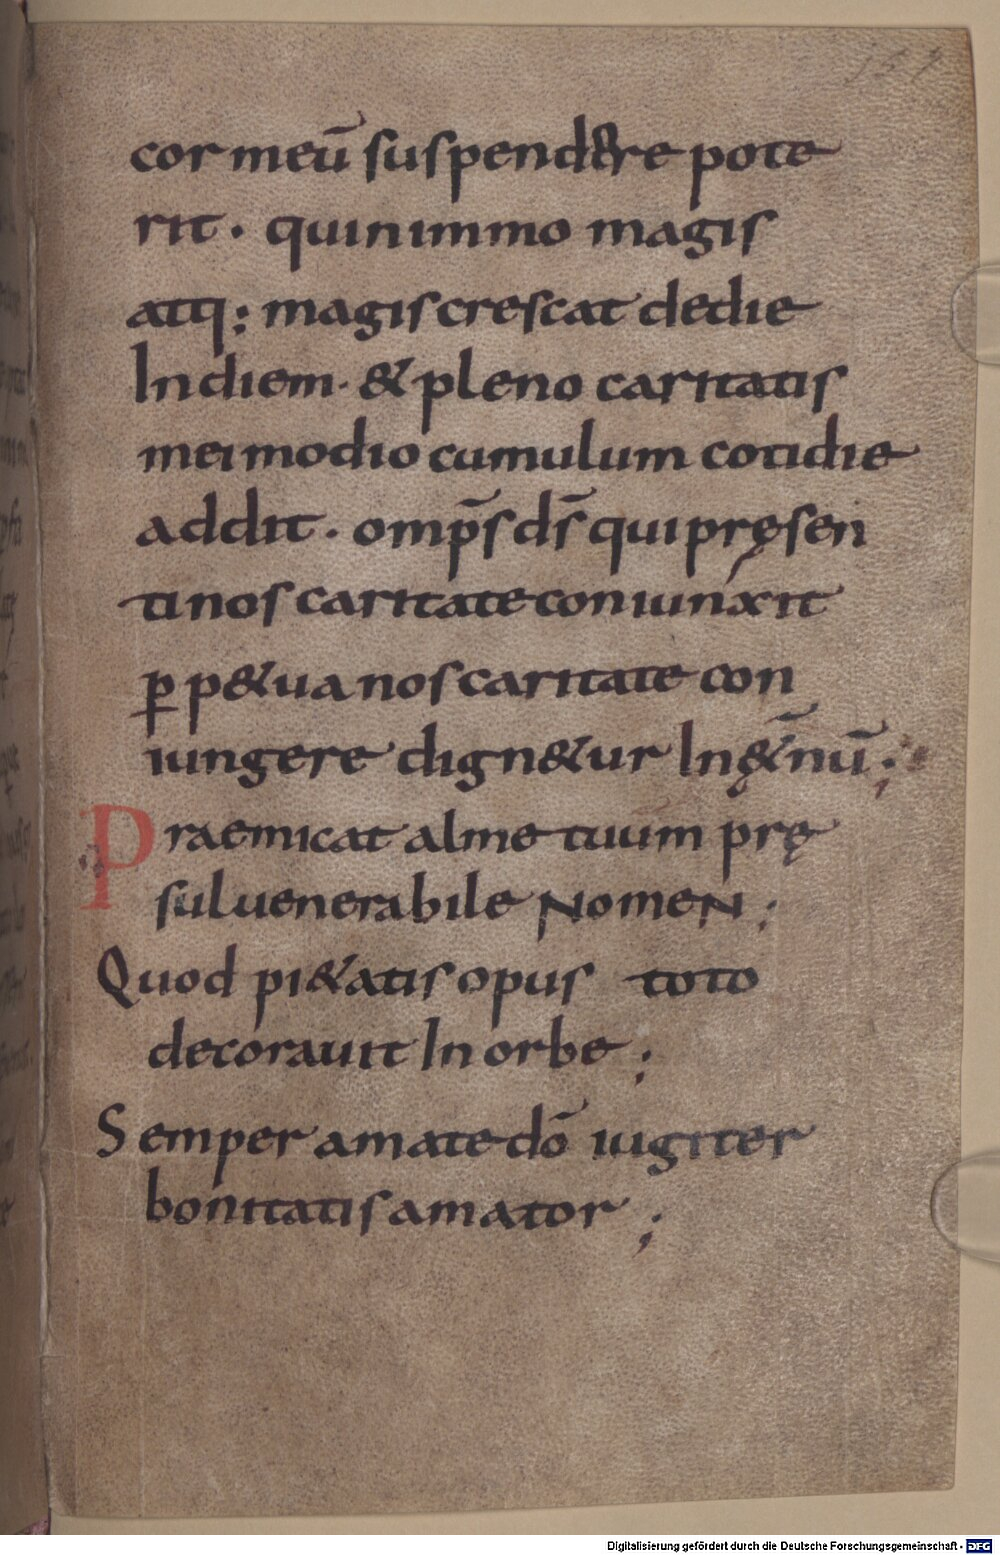 cor meū suspendere pote
rit · quinimmo magis
atq; magis crescat dedie
In diem · & pleno caritatis
mei modio cumulum cotidie
addit · omp̄s ds̄ qui pręsen
ti nos caritate coniunxit
ꝑ p&ua nos caritate con
iungere dign&ur In ę&̄nū ;
Praemicat alme tuum prę
sul uenerabile NomeN ;
Quod pi&atis opus toto
decorauit In orbe ;
Semper amate dō iugiter
bonitatis amator ;
Digitalisierung gefördert durch die Deutsche Forschungsgemeinschaft - DFG